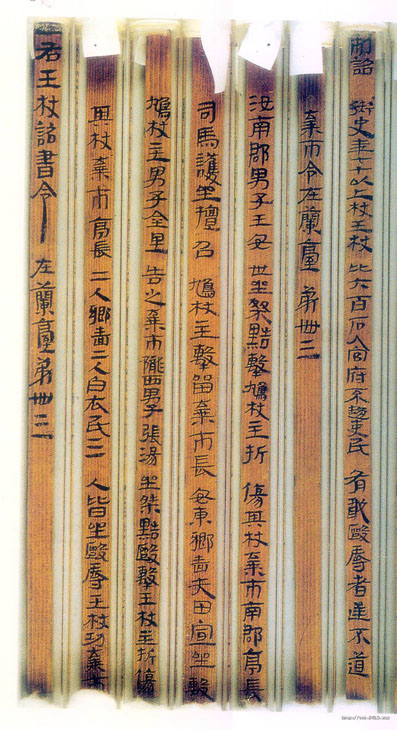 制詔御史年七十以上杖王杖比六百石入官府不趨吏民有敢毆辱者逆不道
棄市令在蘭臺第卌三
汝南郡男子王安世坐桀黠擊鳩杖主折傷其杖棄市南郡亭長
司馬護坐擅召鳩杖主擊留棄市長安東鄉嗇夫田宣坐毄
鳩杖主男子金里告之棄市隴西男子張湯坐桀黠毆擊王杖主折傷
其杖棄市亭長二人鄉嗇二人白衣民三人皆坐毆辱王杖功棄市
右王杖詔書令 在蘭臺第卌三